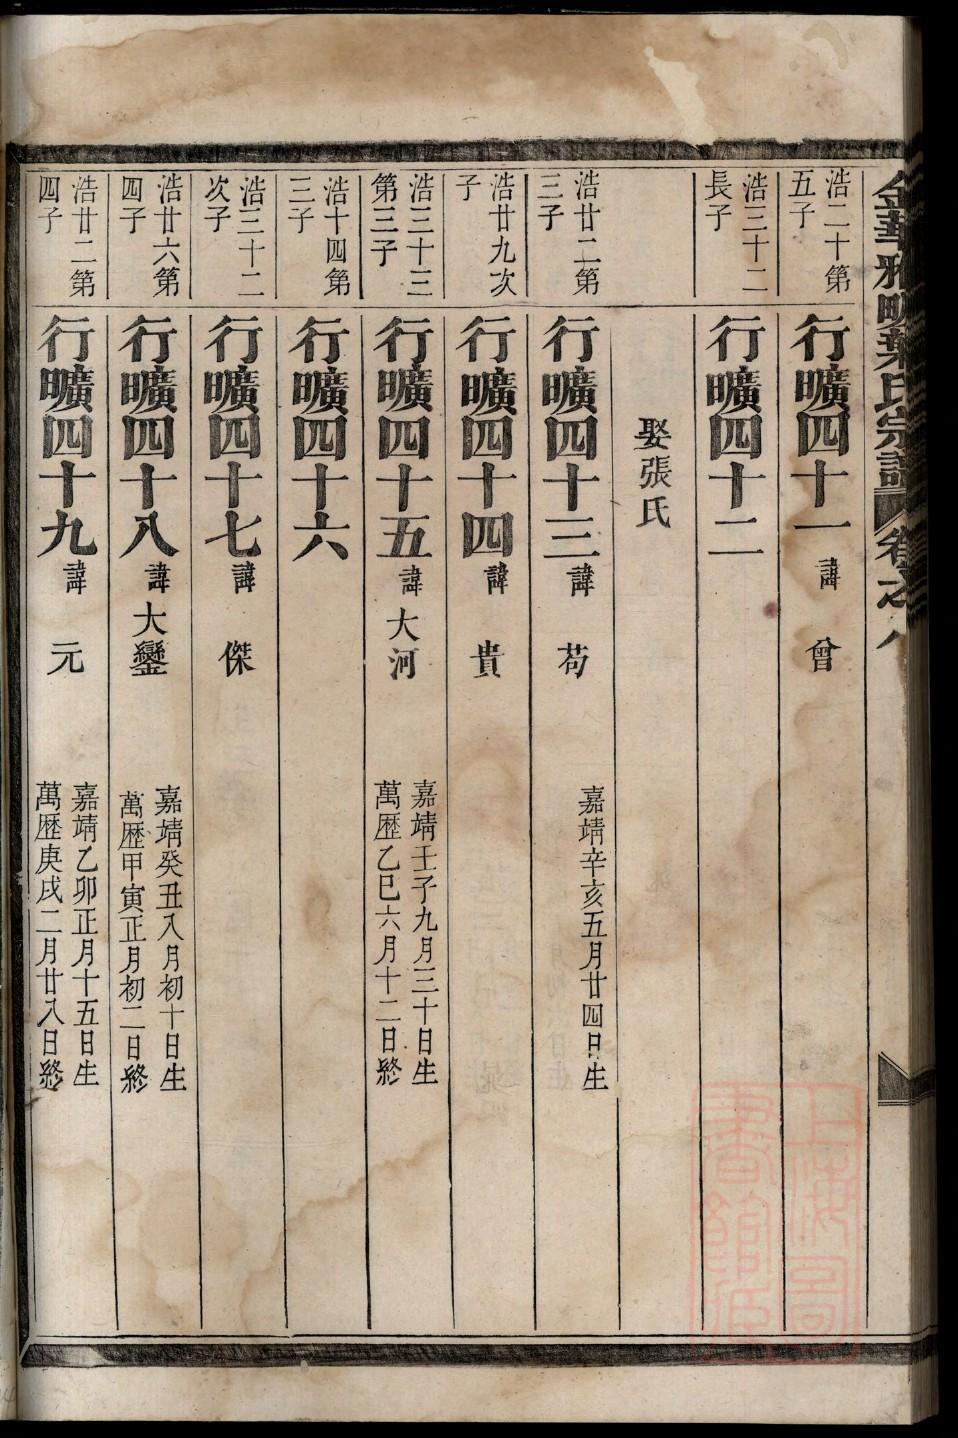 金華雅畈葉氏宗譜 卷之八
浩二十第
五子
行曠四十一 諱 曾
浩三十二
長子
行曠四十二
娶張氏
浩廿二第
三子
行曠四十三 諱 苟
嘉靖辛亥五月廿四日生
浩廿九次
子
行曠四十四 諱 貴
浩三十三
第三子
行曠四十五 諱 大河
嘉靖壬子九月三十日生
萬歷乙巳六月十二日終
浩十四第
三子
行曠四十六
浩三十二
次子
行曠四十七 諱 傑
浩廿六第
四子
行曠四十八 諱 大鑾
嘉靖癸丑八月初十日生
萬歷甲寅正月初二日終
浩廿二第
四子
行曠四十九 諱 元
嘉靖乙卯正月十五日生
萬歷庚戌二月廿八日終
上海圖
書館藏